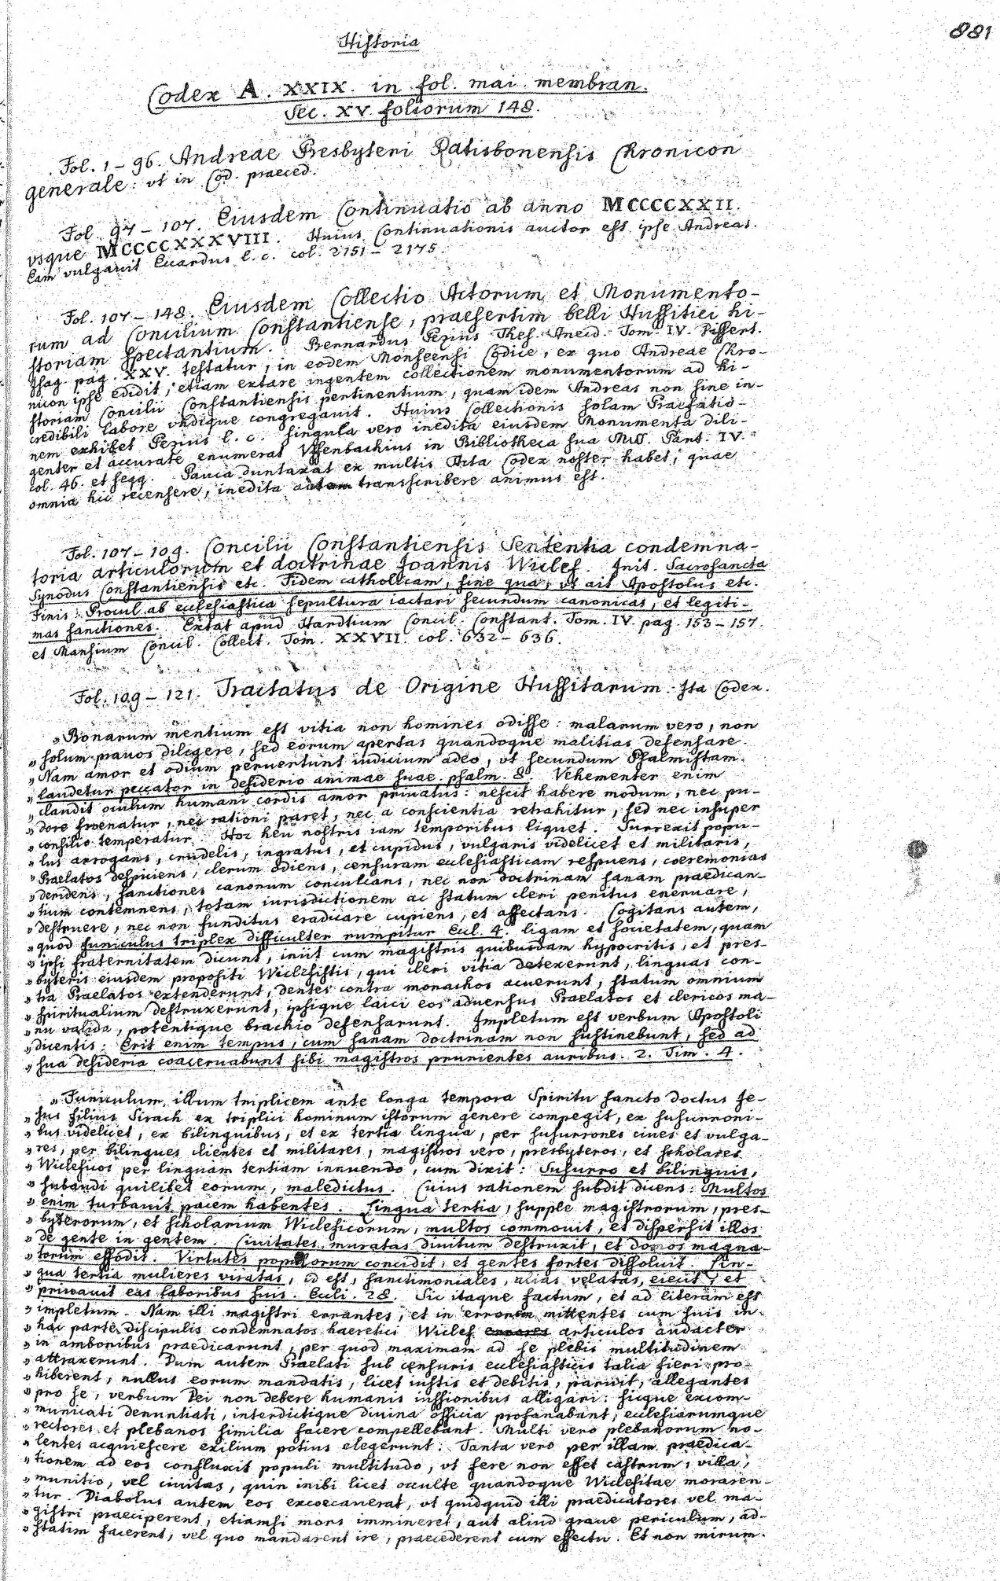 881
Historia
Codex A. XXIX. in fol. mai. membran.
Sec. XV. foliorum 148.
Fol. 1-96. Andreae Presbyteri Ratisbonensis Chronicon
generale: vt in Cod. praeced.
Fol. 97-107. Eiusdem Continuatio ab anno MCCCCXXII.
vsque MCCCCXXXVIII. Huius Continuationis auctor est ipse Andreas.
Eam vulgauit Eccardus l. c. col. 2151-2175.
Fol. 107-148. Eiusdem Collectio Actorum et Monumento-
rum ad Concilium Constantiense, praesertim belli Hussitici hi-
storiam spectantium. Bernardus Pezius Thes. Anecd. Tom. IV. Dissert.
Isag. pag. XXV. testatur, in eodem Monseensi Codice, ex quo Andreae Chro-
nicon ipse edidit, etiam extare ingentem collectionem monumentorum ad hi-
storiam Concilii Constantiensis pertinentium, quam idem Andreas non sine in-
credibili labore vndique congregauit. Huius Collectionis solam Praefatio-
nem exhibet Pezius l. c. singula vero inedita eiusdem Monumenta dili-
genter et accurate enumerat Vffenbachius in Bibliotheca sua MSS. Part. IV.
col. 46. et seqq. Pauca duntaxat ex multis Acta Codex noster habet, quae
omnia hic recensere, inedita autem transscribere animus est.
Fol. 107-109. Concilii Constantiensis Sententia condemna-
toria articulorum et doctrinae Joannis Wiclef. Init. Sacrosancta
Synodus Constantiensis etc. Fidem catholicam, sine qua, vt ait Apostolus etc.
Finis: Procul ab ecclesiastica sepultura iactari secundum canonicas, et legiti-
mas sanctiones. Extat apud Hardtium Concil. Constant. Tom. IV. pag. 153-157.
et Mansium Concil. Collect. Tom. XXVII. col. 632-636.
Fol. 109-121. Tractatus de Origine Hussitarum. Ita Codex.
„Bonarum mentium est vitia non homines odisse: malarum vero, non
„solum prauos diligere, sed eorum apertas quandoque malitias defensare.
„Nam amor et odium peruertunt iudicium adeo, vt secundum Psalmistam
„laudetur peccator in desiderio animae suae. psalm. 8. Vehementer enim
„claudit oculum humani cordis amor priuatus: nescit habere modum, nec pu-
„dore froenatur, nec rationi paret, nec a conscientia retrahitur, sed nec insuper
„consilio temperatur. Hoc heu nostris iam temporibus liquet. Surrexit popu-
„lus arrogans, crudelis, ingratus, et cupidus, vulgaris videlicet et militaris,
„Praelatos despiciens, clerum odiens, censuram ecclesiasticam respuens, coeremonias
„deridens, sanctiones canonum conculcans, nec non doctrinam sanam praedican-
„tium contemnens, totam iurisdictionem ac statum cleri penitus eneruare,
„destruere, nec non funditus eradicare cupiens, et affectans. Cogitans autem,
„quod funiculus triplex difficulter rumpitur Eccl. 4. ligam et societatem, quam
„ipsi fraternitatem dicunt, iniit cum magistris quibusdam hypocritis, et pres-
„byteris eiusdem propositi Wiclefistis, qui cleri vitia detexerunt, linguas con-
„tra Praelatos extenderunt, dentes contra monachos acuerunt, statum omnium
„spiritualium destruxerunt, ipsique laici eos aduersus Praelatos et clericos ma-
„nu valida, potentique brachio defensarunt. Impletum est verbum Apostoli
„dicentis: Erit enim tempus, cum sanam doctrinam non sustinebunt, sed ad
„sua desideria coaceruabunt sibi magistros prurientes auribus. 2. Tim. 4.
„Funiculum illum triplicem ante longa tempora Spiritu sancto doctus Je-
„sus filius Sirach ex triplici hominum istorum genere compegit, ex susurroni-
„bus videlicet, ex bilinguibus, et ex tertia lingua, per susurrones ciues et vulga-
„res, per bilingues clientes et militares, magistros vero, presbyteros, et scholares
„Wiclesicos per linguam tertiam innuendo, cum dixit: Susurro et bilinguis,
„subaudi quilibet eorum, maledictus. Cuius rationem subdit dicens: Multos
„enim turbauit pacem habentes. Lingua tertia, supple magistrorum, pres-
„byterorum, et scholarium Wiclesicorum, multos commouit, et dispersit illos
„de gente in gentem. Ciuitates muratas diuitum destruxit, et domos magna-
„torum effodit. Virtutes populorum concidit, et gentes fortes dissoluit. Lin-
„gua tertia mulieres viratas, id est, sanctimoniales, alias velatas, eiecit, et
„priuauit eas laboribus suis. Eccli. 28. Sic itaque factum, et ad literam est
„impletum. Nam illi magistri errantes, et in errorem mittentes cum suis in
„hac parte discipulis condemnatos haeretici Wiclef articulos audacter
„in ambonibus praedicarunt, per quod maximam ad se plebis multitudinem
„attraxerunt. Dum autem Praelati sub censuris ecclesiasticis talia fieri pro-
„hiberent, nullus eorum mandatis, licet iustis et debitis, paruit, allegantes
„pro se, verbum Dei non debere humanis iussionibus alligari: sicque excom-
„municati denuntiati, interdictique diuina officia profanabant, ecclesiarumque
„rectores et plebanos similia facere compellebant. Multi vero plebanorum no-
„lentes acquiescere exilium potius elegerunt. Tanta vero per illam praedica-
„tionem ad eos confluxit populi multitudo, vt fere non esset castrum, villa,
„munitio, vel ciuitas, quin inibi licet occulte quandoque Wiclefitae moraren-
„tur. Diabolus autem eos excoecauerat, vt quidquid illi praedicatores vel ma-
„gistri praeciperent, etiamsi mors immineret, aut aliud graue periculum, ad-
„statim facerent, vel quo mandarent ire, praecederent cum effectu. Et non mirum.